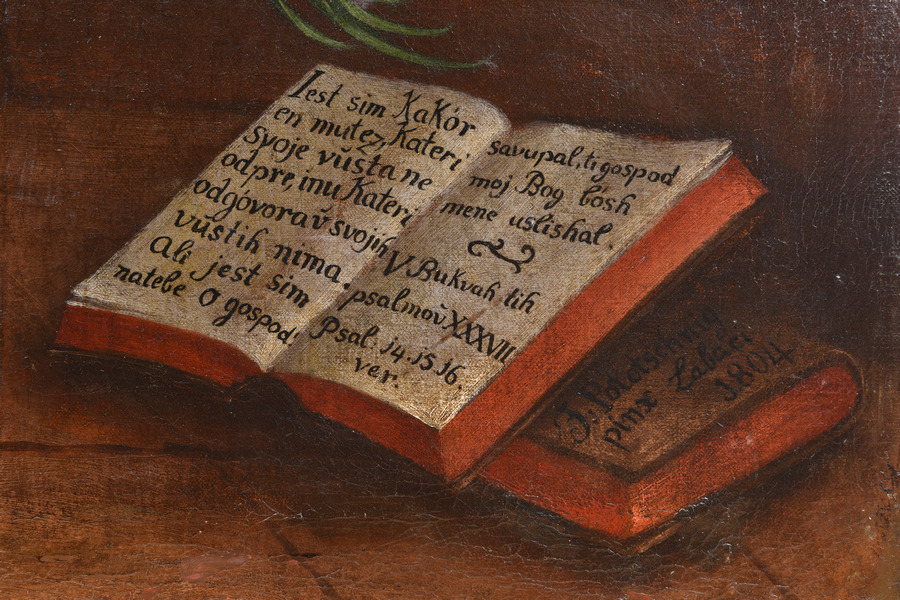 Iest sim KaKór
en mutez, Kateri
svoje vŭsta ne
odpre, inu Kateri
odgóvora v̆ svojih
vŭstih nima.
Ali jest sim
natebe O gospod!
savupal, ti gospod
moj Bog bósh
mene uslishal.
V Bukvah tih
psalmov̆ XXXVII
Psal: 14. 15. 16.
ver.
pinx Labaci
1804